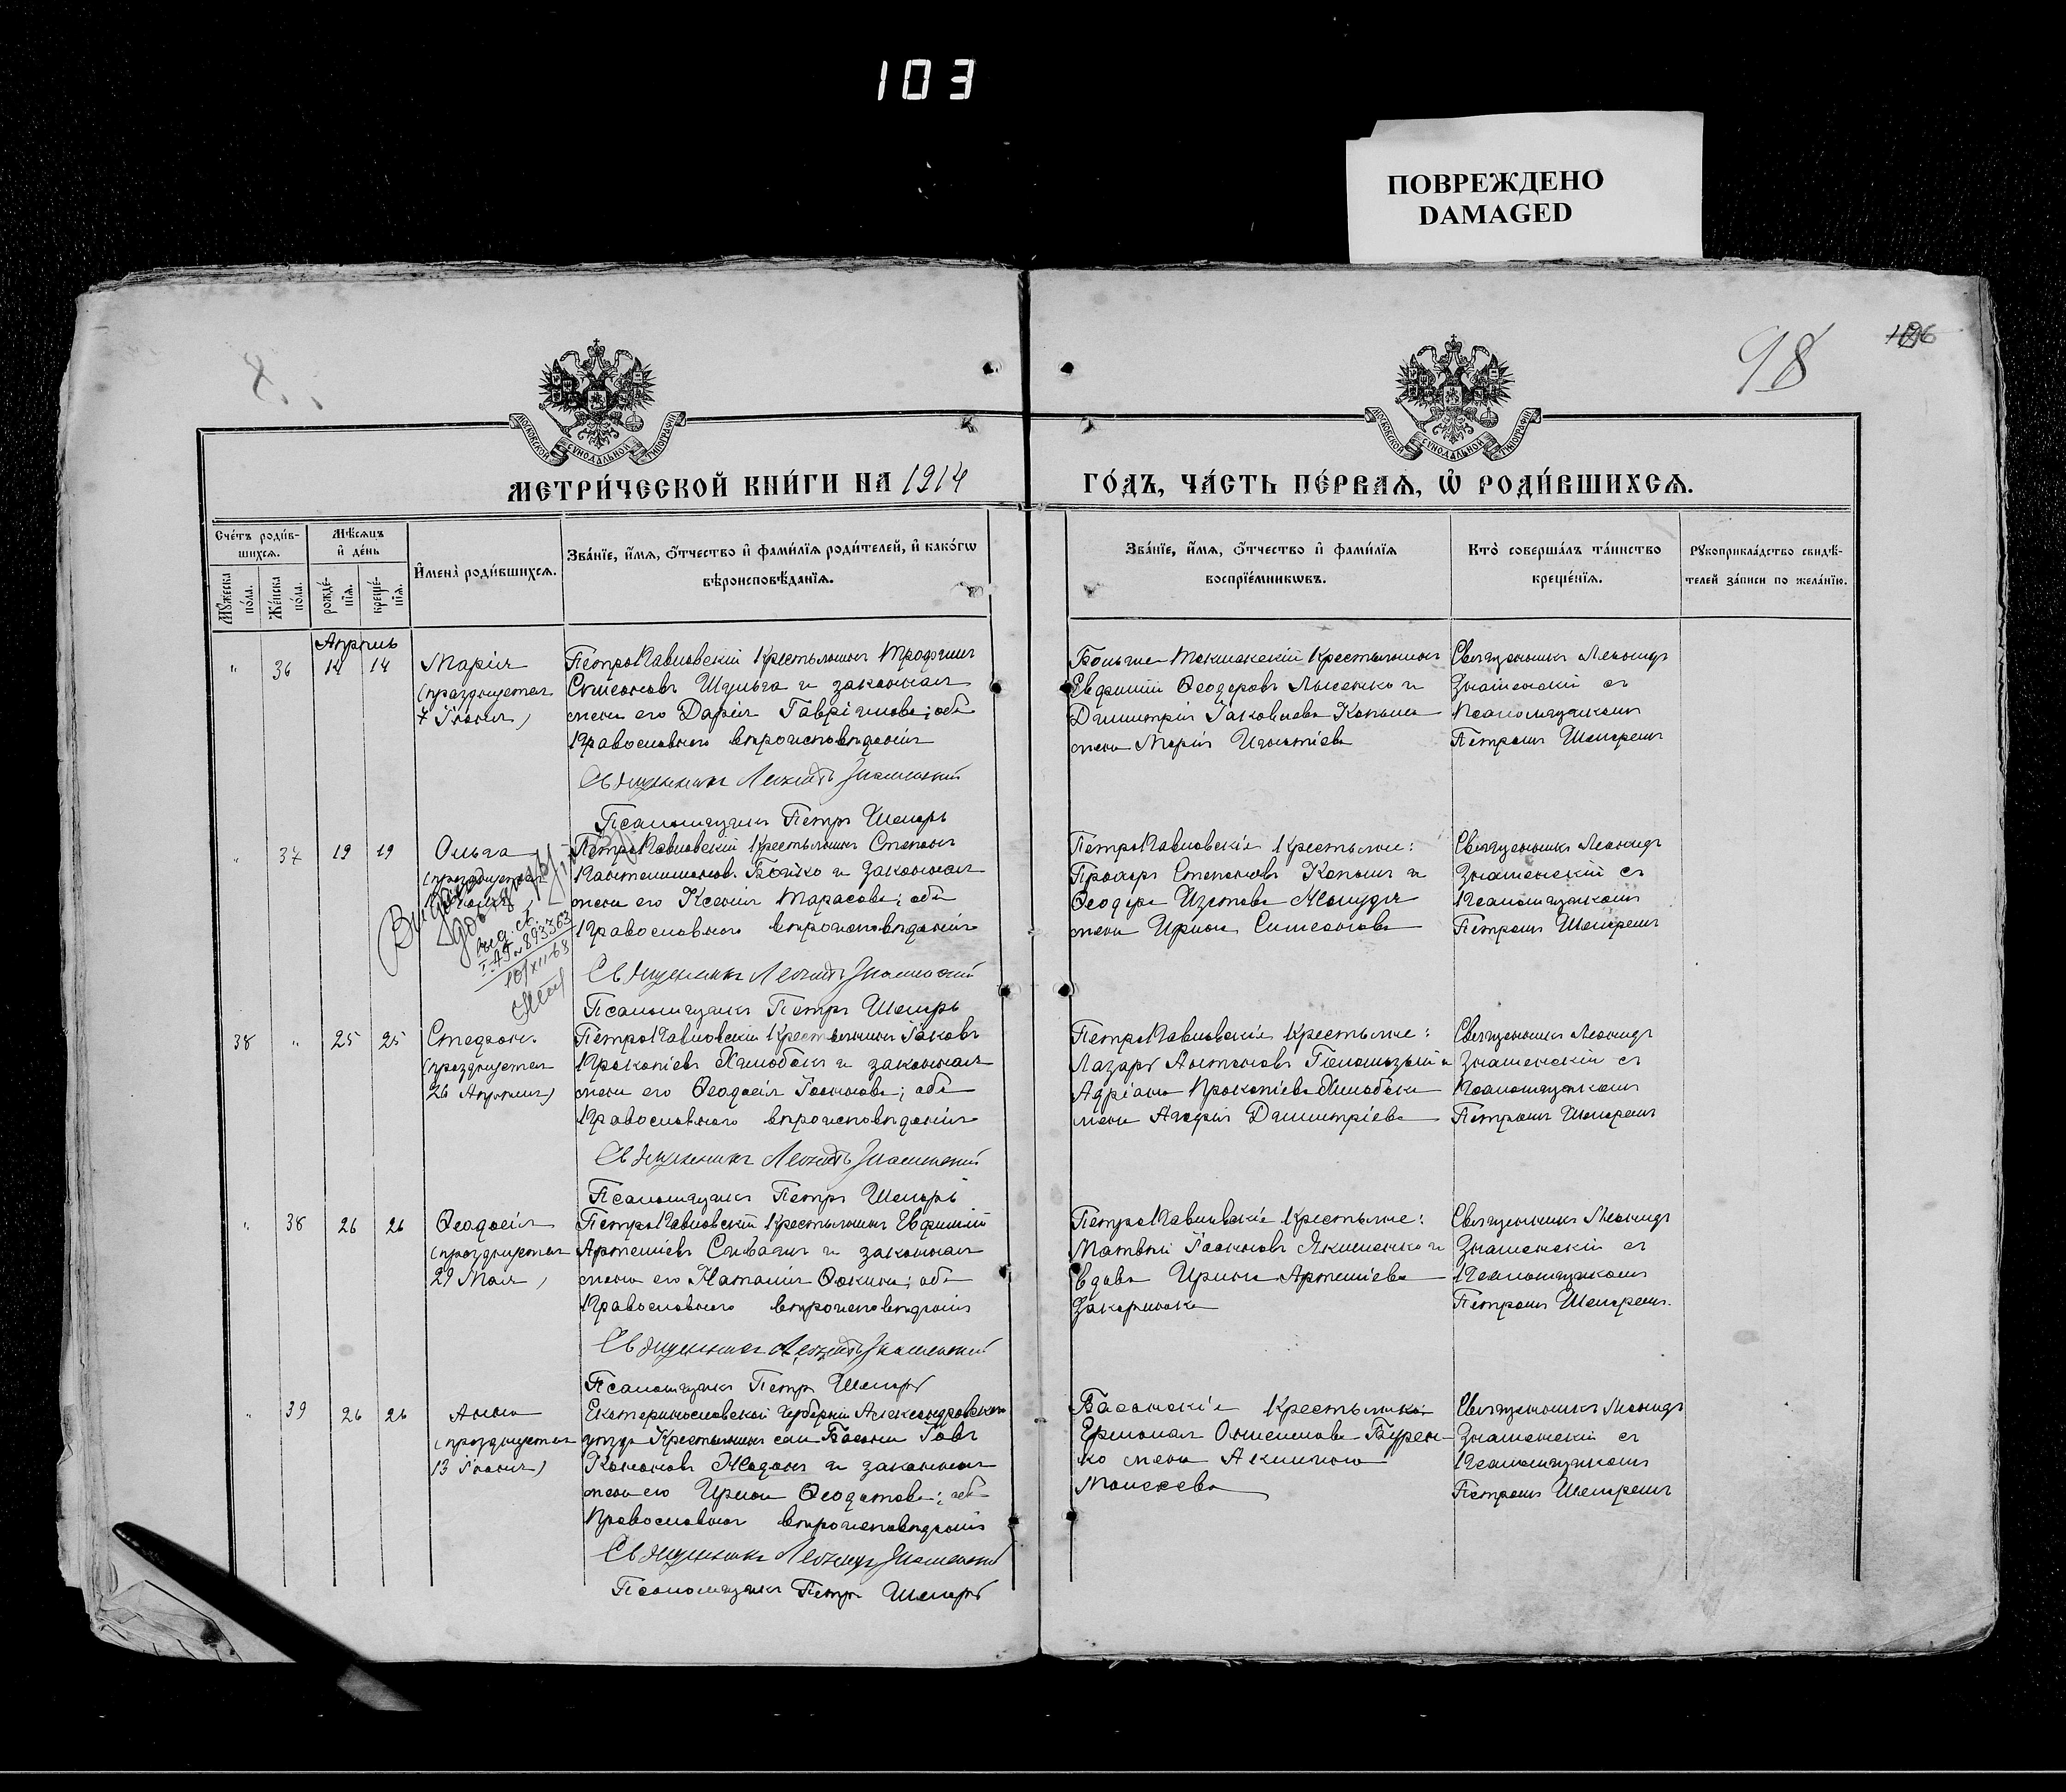 103
ПОВРЕЖДЕНО
DAMAGED
98
МОСКОВСКОЙ СѴНОДАЛЬНОЙ ТИПОГРАФІИ
МОСКОВСКОЙ СѴНОДАЛЬНОЙ ТИПОГРАФІИ
МЕТРИ́ЧЕСКОЙ КНИ́ГИ НА 1914
ГО́ДЪ, ЧА́СТЬ ПЕ́РВАѦ, Ѡ҆ РОДИ́ВШИХСѦ.
Сче́тъ роди́в-
шихсѧ.
Мѣ́сѧцъ
и҆ де́нь
И҆мена̀ роди́вшихсѧ.
Зва́нїе, и҆́мѧ, ѻ҆́тчество и҆ фами́лїѧ роди́телей, и҆ како́гѡ
вѣроисповѣ́данїѧ.
Мꙋ́жеска
по́ла.
Же́нска
по́ла.
рожде́-
нїѧ.
креще́-
нїѧ.
Зва́нїе, и҆́мѧ, ѻ҆́тчество и҆ фами́лїѧ
воспрїе́мникѡвъ.
Кто̀ соверша́лъ та́инство
креще́нїѧ.
Рꙋкоприкла́дство свидѣ́-
телей за́писи по жела́нїю.
Апрѣль
" 36 14 14
Марія
(празднуется
7 Іюня)
ПетроПавловскій Крестьянинъ Трофимъ
Симеоновъ Шульга и законная
жена его Дарія Гавріилова; оба
Православнаго вѣроисповѣданія
Священникъ Леонидъ Знаменскій
Псаломщикъ Петръ
Больше Токмакскій Крестьянинъ
Евфимій Ѳеодоровъ Лысенко и
Димитрія Іаковлева Копыла
жена Марія Игнатіева
Священникъ Леонидъ
Знаменскій съ
Псаломщикомъ
Петромъ
" 37 19 19
Ольга
(празднуется
ПетроПавловскій Крестьянинъ Стефанъ
Пантелимоновъ Бойко и законная
жена его Ксенія Тарасова; оба
Православнаго вѣроисповѣданія
№ 893763
10/XII-63
Священникъ Леонидъ Знаменскій
Псаломщикъ Петръ
ПетроПавловскіе Крестьяне:
Прохоръ Стефановъ Копылъ и
Ѳеодора Изотова
жена Ирина Симеонова
Священникъ Леонидъ
Знаменскій съ
Псаломщикомъ
Петромъ
38 " 25 25
Стефанъ
(празднуется
26 Апрѣля)
ПетроПавловскій Крестьянинъ Іаковъ
Прокопіевъ Хлыбовъ и законная
жена его Ѳеодосія Іоаннова; оба
Православнаго вѣроисповѣданія
Священникъ Леонидъ Знаменскій
Псаломщикъ Петръ
ПетроПавловскіе Крестьяне:
Лазарь Антоновъ и
Адріана Прокопіева
жена Агафія Димитріева
Священникъ Леонидъ
Знаменскій съ
Псаломщикомъ
Петромъ
" 38 26 26
Ѳеодосія
(празднуется
29 Мая)
ПетроПавловскій Крестьянинъ Евфимій
Артеміевъ и законная
жена его Наталія Ѳокина; оба
Православнаго вѣроисповѣданія
Священникъ Леонидъ Знаменскій
Псаломщикъ Петръ
ПетроПавловскіе Крестьяне:
Матвѣй Іоанновъ Якименко и
вдова Ирина Артеміева
Священникъ Леонидъ
Знаменскій съ
Псаломщикомъ
Петромъ
" 39 26 26
Анна
(празднуется
13 Іюня)
Екатеринославской Губерніи Александровскаго
уѣзда Крестьянинъ села Басани Іовъ
Кононовъ и законная
жена его Ирина Ѳеодотова; оба
Православнаго вѣроисповѣданія
Священникъ Леонидъ Знаменскій
Псаломщикъ Петръ
Басанскіе Крестьяне:
Бурен-
ко жена Акилина
Моисеева
Священникъ Леонидъ
Знаменскій съ
Псаломщикомъ
Петромъ